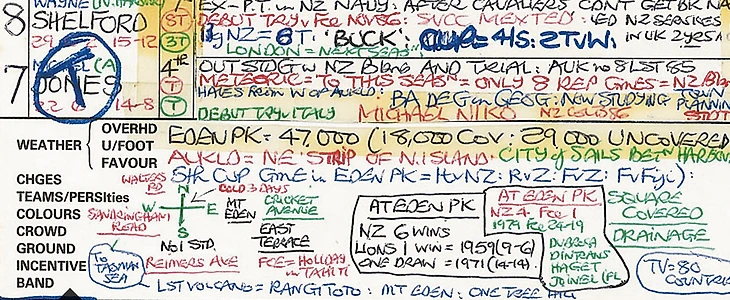 8 SHELFORD 8T EX-P.T. in NZ NAVY: AFTER CAVALIERS CDN'T GET BK
DEBUT TRY v Fce NOV86: SUCC MEXTED: LED NZ SERVICES
15-12 3T NZ = 8T: 'BUCK': CUP = 4TS: 2TVW: IN UK 2YRS
LONDON = NEXT SEAS
7 JONES 4TH OUTSTDG W NZ AND TRIAL: AUK no 8 LST 85
T METEORIC = TO THIS SEASN = ONLY 8 REP GMES = NZ
HAILS FROM W OF AUKLD: BA DEG in GEOG: NOW STUDYING TOWN PLANNING
14-8 T DEBUT TRY v ITALY MICHAEL NIKO NZ COLTS 86
WEATHER OVERHD U/FOOT FAVOUR
EDEN PK = 47,000 (18,000 COV: 29,000 UNCOVERED
AUKLD = NE STRIP OF N. ISLAND: CITY of SAILS BETN HARBOUR
CHGES WALTERS RD N COLD 3 DAYS 5th CUP GME in EDEN PK = ItvNZ: RvZ: FvZ: FvFiji):
TEAMS/PERSIties W E MT EDEN CRICKET AVENUE
COLOURS SANDRINGHAM ROAD S
CROWD No1 STD. EAST TERRACE
GROUND REIMERS AVE FCE = HOLIDAY in TAHITI
INCENTIVE TO TASMAN SEA
BAND LST VOLCANO = RANGITOTO: MT EDEN: ONE TREE HILL
AT EDEN PK
NZ 6 WINS
LIONS 1 WIN = 1959 (9-6)
ONE DRAW = 1971 (14-14).
AT EDEN PK
NZ 4 Fce 1
1979 Fce 24-19
DUBROCA
DINTRANS
HAGET
JOINEL (FL
SQUARE
COVERED
DRAINAGE
TV = 80
COUNTRIES